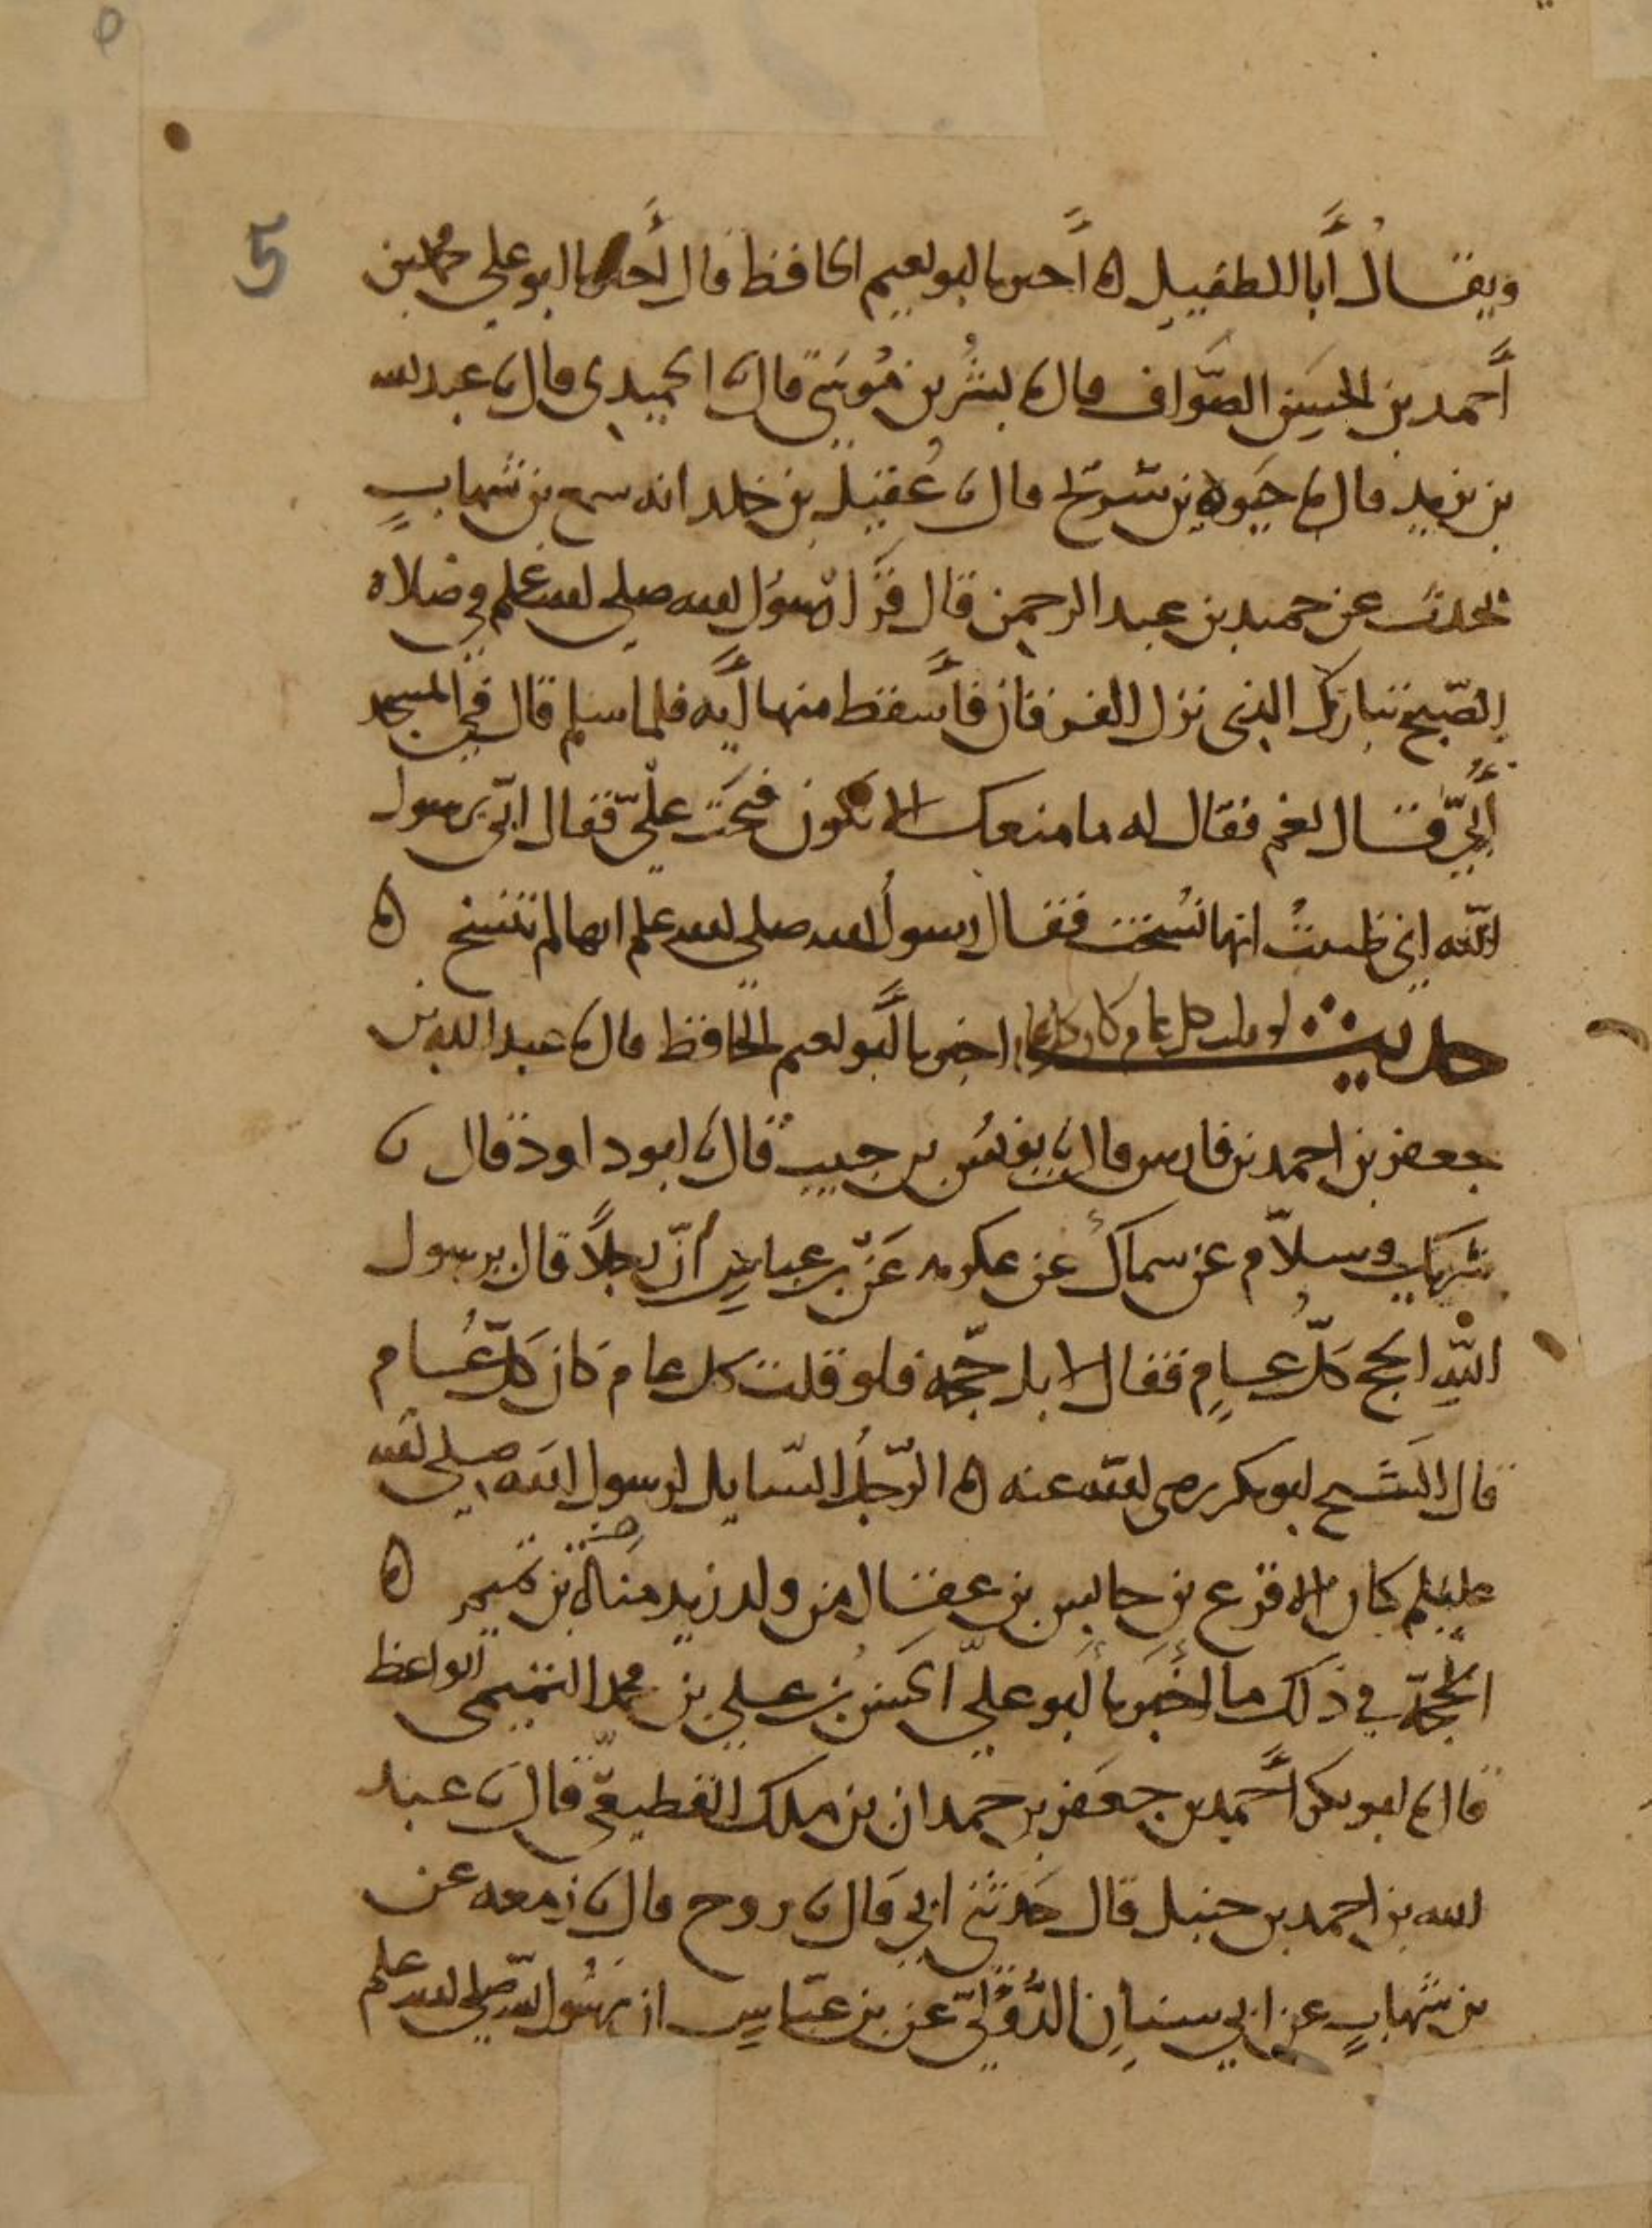 5
ويقال أبا الطفيل ه أخبرنا أبو نعيم الحافظ قال أخبرنا أبو علي محمد بن
أحمد بن الحسن الصواف قال نا بشر بن موسى قال نا الحميدي قال نا عبد الله
بن يزيد قال نا حيوه بن شريح قال نا عقيل بن خلد انه سمع بن شهاب
يحدث عن حميد بن عبد الرحمن قال قرا رسول الله صلى الله عليه وسلم في صلاه
الصبح تبارك الذي نزل الفرقان فأسقط منها أيه فلما سلم قال في المسجد
أبيّ فقال نعم فقال له ما منعك الا تكون فتحت عليّ فقال ابيّ يرسول
الله اني ظننت انها نسخت فقال رسول الله صلى الله عليه وسلم انها لم تنسخ ه
حديث لو قلت كل عام كان كل عام اخبرنا أبو نعيم الحافظ قال نا عبد الله بن
جعفر بن احمد بن فارس قال نا يونس بن حبيب قال نا ابو داود قال نا
شريك وسلاّم عن سماك عن عكرمه عن بن عباس أنّ رجلاً قال يرسول
الله الحج كلّ عام فقال لا بل حجّه فلو قلت كل عام كان كلّ عام
قال الشيخ ابو بكر رضي الله عنه ه الرّجل السّايل لرسول الله صلى الله
عليه وسلم كان الاقرع بن حابس بن عقال من ولد زيد مناة بن تميم ه
الحجّة في ذلك ما أخبرنا أبو عليّ الحسن بن علي بن محمد التميمي الواعظ
قال نا ابو بكر أحمد بن جعفر بن حمدان بن ملك القطيعيّ قال نا عبد
الله بن احمد بن حنبل قال حدثني ابي قال نا روح قال نا زمعه عن
بن شهاب عن ابي سنان الدُّؤَليّ عن بن عبّاس ان رسول الله صلى الله عليه وسلم